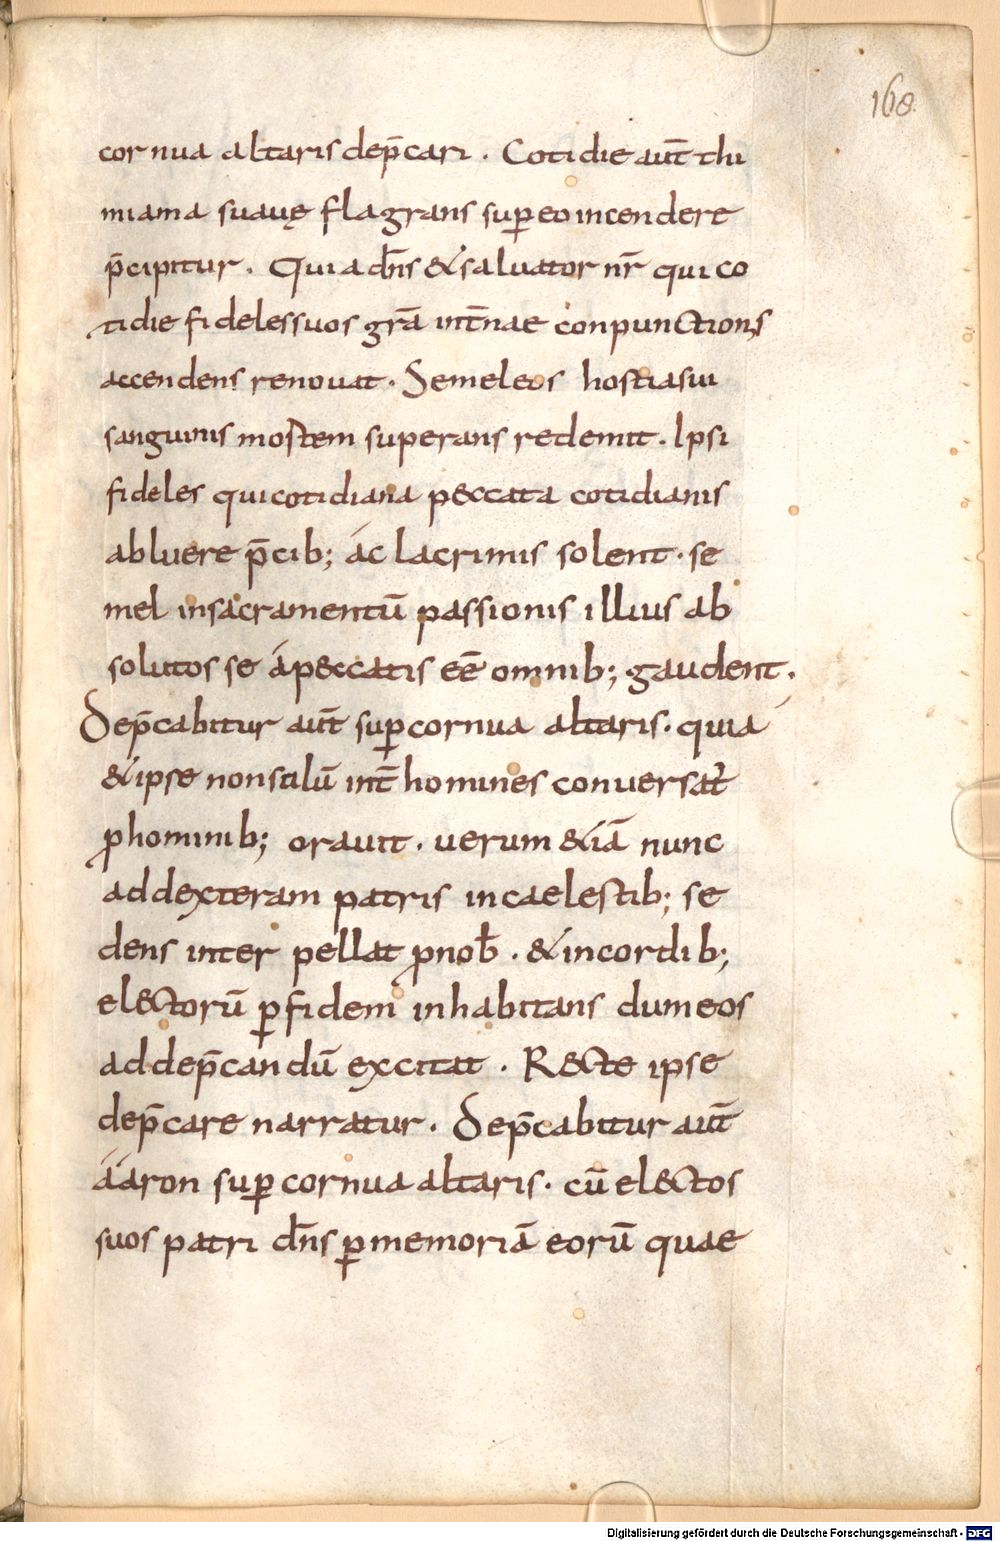 168.
cornua altaris dep̄cari . Cotidie aut̄ thi
miama suauę flagrans sup̲ eo incendere
p̄cipitur . Quia dn̄s & saluator nr̄ qui co
tidie fideles suos grā int̄nae conpunctionis
accendens renouat . Semel eos hostia sui
sanguinis mortem superans redemit . Ipsi
fideles qui cotidiana peccata cotidianis
abluere p̄cib; ác lacrimis solent . se
mel in sacramentū passionis illius ab
solutos se á peccatis eē omnib; gaudent .
Dep̄cabitur aut̄ sup̲ cornua altaris . quia
& ipse non solū int̄ homines conuersat᷒
ꝓ hominib; orauit . uerum &iā nunc
ad dexteram patris in caelestib; se
dens inter pellat ꝓ nob̄ . & in cordib;
el&ctorū ꝑ fidem inhabitans dum eos
ad dep̄candū excitat . R&cte ipse
dep̄care narratur . Dep̄cabitur aut̄
ááron suꝑ cornua altaris . cū el&ctos
suos patri dn̄s ꝑ memoriā eorū quae
Digitalisierung gefördert durch die Deutsche Forschungsgemeinschaft - DFG